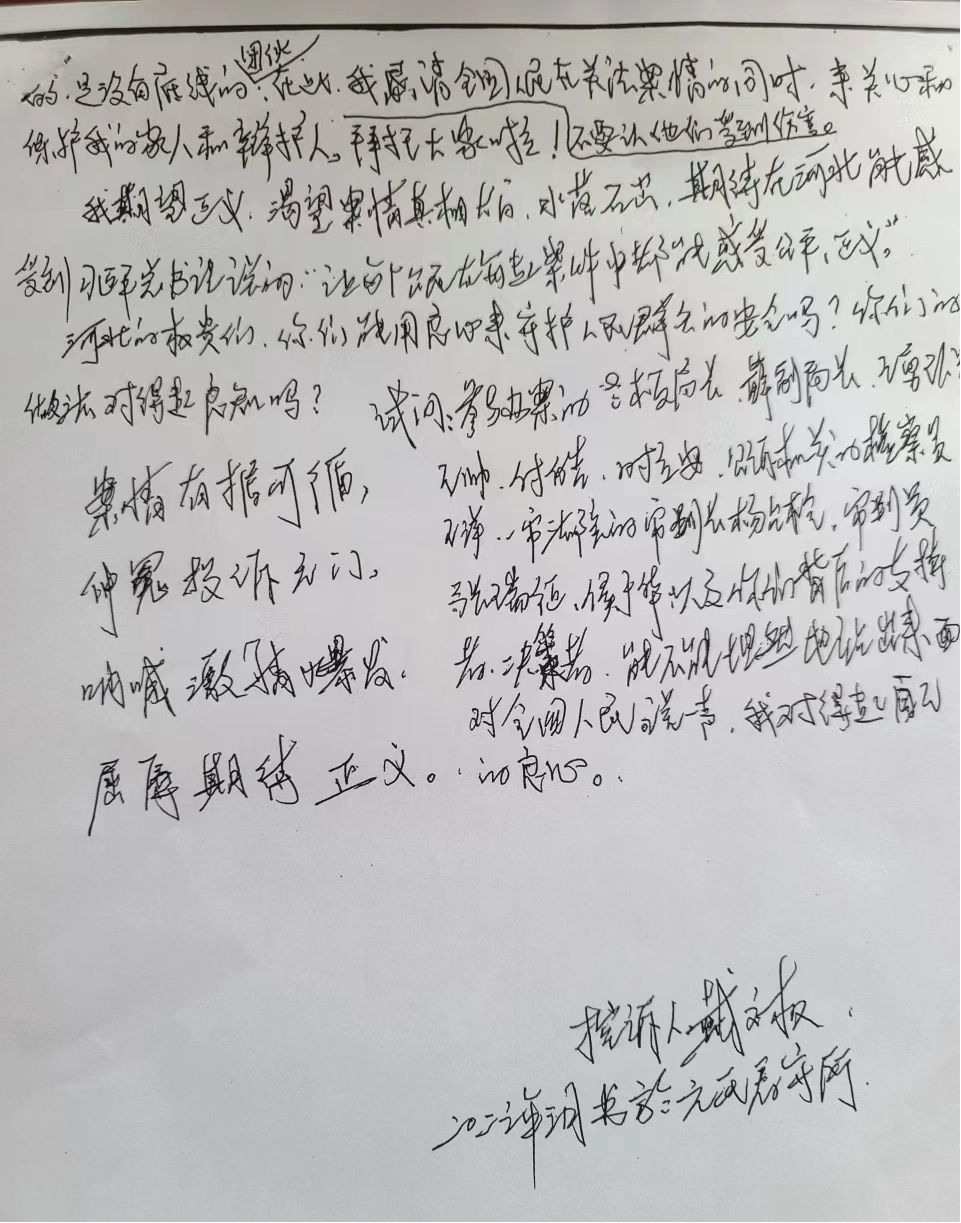 的,是没有底线的团伙。在此,我恳请全国人民在关注案情的同时,来关心和
保护我的家人和辩护人。拜托大家啦!不要让他们受到伤害。
我期望正义,渴望案情真相大白,水落石出,期待在河北能感
受到习近平总书记说的:“让每个人民在每起案件中都能感受公平、正义。”
河北的权贵们,你们能用良心来守护人民群众的安全吗?你们的
做法对得起良知吗?
试问:参与办案的 局长、薛 局长、王
案情有据可循,
伸冤投诉无门,
呐喊激情爆发,
屈辱期待正义。
王帅、付 、 机关的检察员
王 、一审法院的审判长杨 、审判员
以及他们背后的支持
者、决策者,能不能坦然地站出来面
对全国人民说一声,我对得起自己
的良心。
控诉人:戴
二〇二 年 月书於元氏看守所